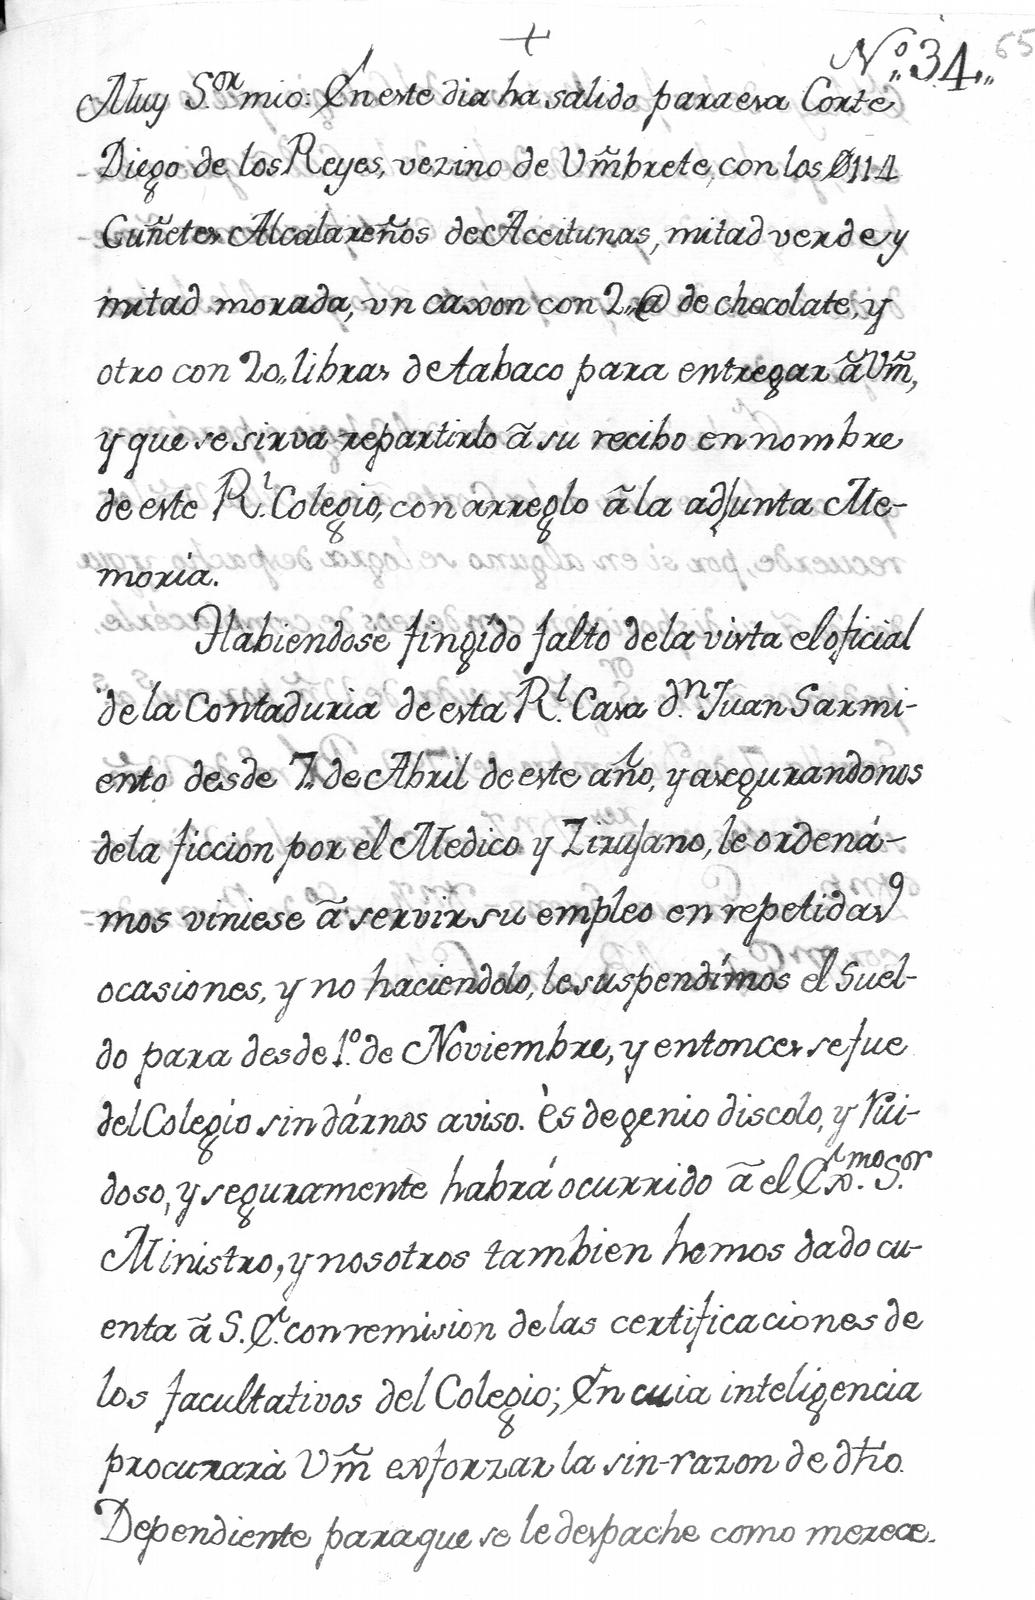 +
Nº,,34,,
65
Muy S.or mio: En este dia ha salido para esa Corte
Diego de los Reyes, vezino de Vm̃brete, con los Ø114
Cuñetes Alcalareños de Aceitunas, mitad verde, y
mitad morada, vn caxon con 2,,@ de chocolate, y
otro con 20,, libras de tabaco para entregar ã Vm̃,
y que se sirva repartirlo ã su recibo en nombre
de este R.l Colegio, con arreglo ã la adjunta Me-
moria.
Habiendose fingido falto de la vista el oficial
de la Contaduria de esta R.l Casa d.n Juan Sarmi-
ento desde 7,, de Abril de este año, y asegurandonos
de la ficcion por el Medico y Zirujano, le ordená-
mos viniese ã servir su empleo en repetidas
ocasiones, y no haciendolo, le suspendímos el Suel-
do para desde 1.º de Noviembre, y entonces se fue
del Colegio sin dárnos aviso. Es de genio discolo, y rui-
doso, y seguramente habrá ocurrido ã el Ex.mo S.or
Ministro, y nosotros tambien hemos dado cu-
enta ã S. E. con remision de las certificaciones de
los facultativos del Colegio; En cuia inteligencia
procurará Vm̃ exforzar la sin-razon de dho.
Dependiente para que se le despache como merece.